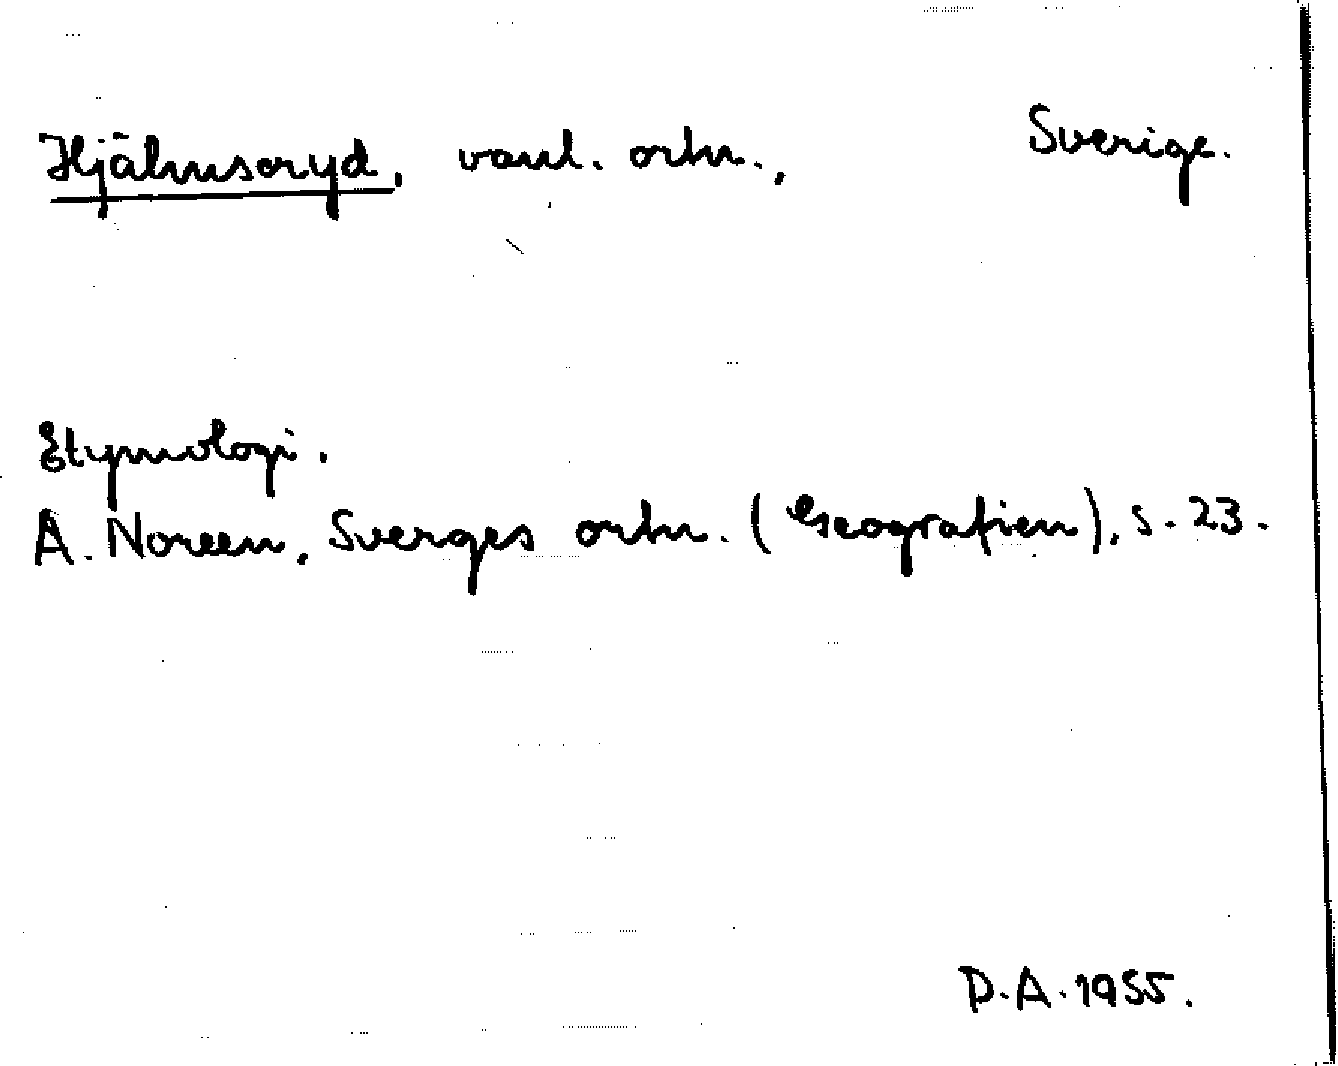 Hjälmseryd, vanl. ortn., Sverige.
Etymologi.
A. Noreen, Sverges ortn. (Geografien), s. 23.
D.A. 1955.